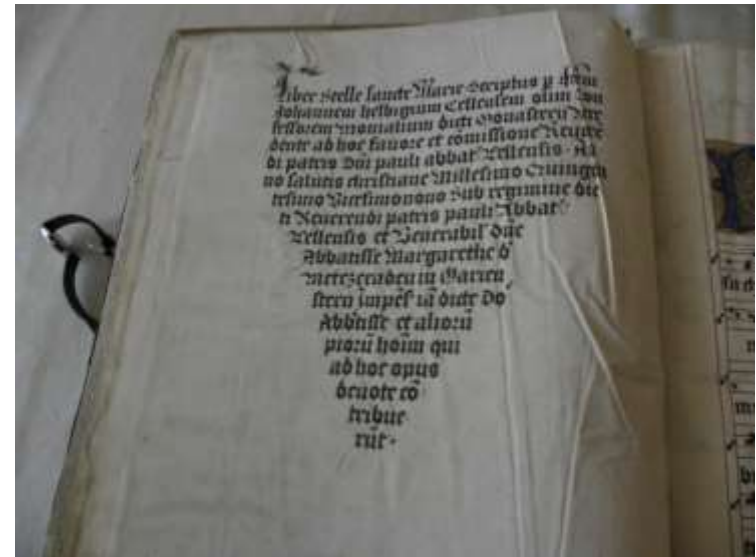 Liber Stelle sancte Marie Scriptus p
Johannem helbigium Cellensem olim Con
fessorem monialium dicti Monasterii
dente ad hoc fauore et cōmissione Reuerē
di patris Dm̄ pauli abbat Cellensis. An
no salutis christiane Millesimo Quingen
tesimo Vicesimonono Sub regimine dic
ti Reuerendi patris pauli Abbat
Cellensis et Venerabil dn̄e
Abbatisse Margarethe d
Metezeraden in Marien
stern jmpēs iā dicte Do
Abbatisse et aliorū
piorū hoīm qui
ad hoc opus
deuote cō
tribue
rūt.